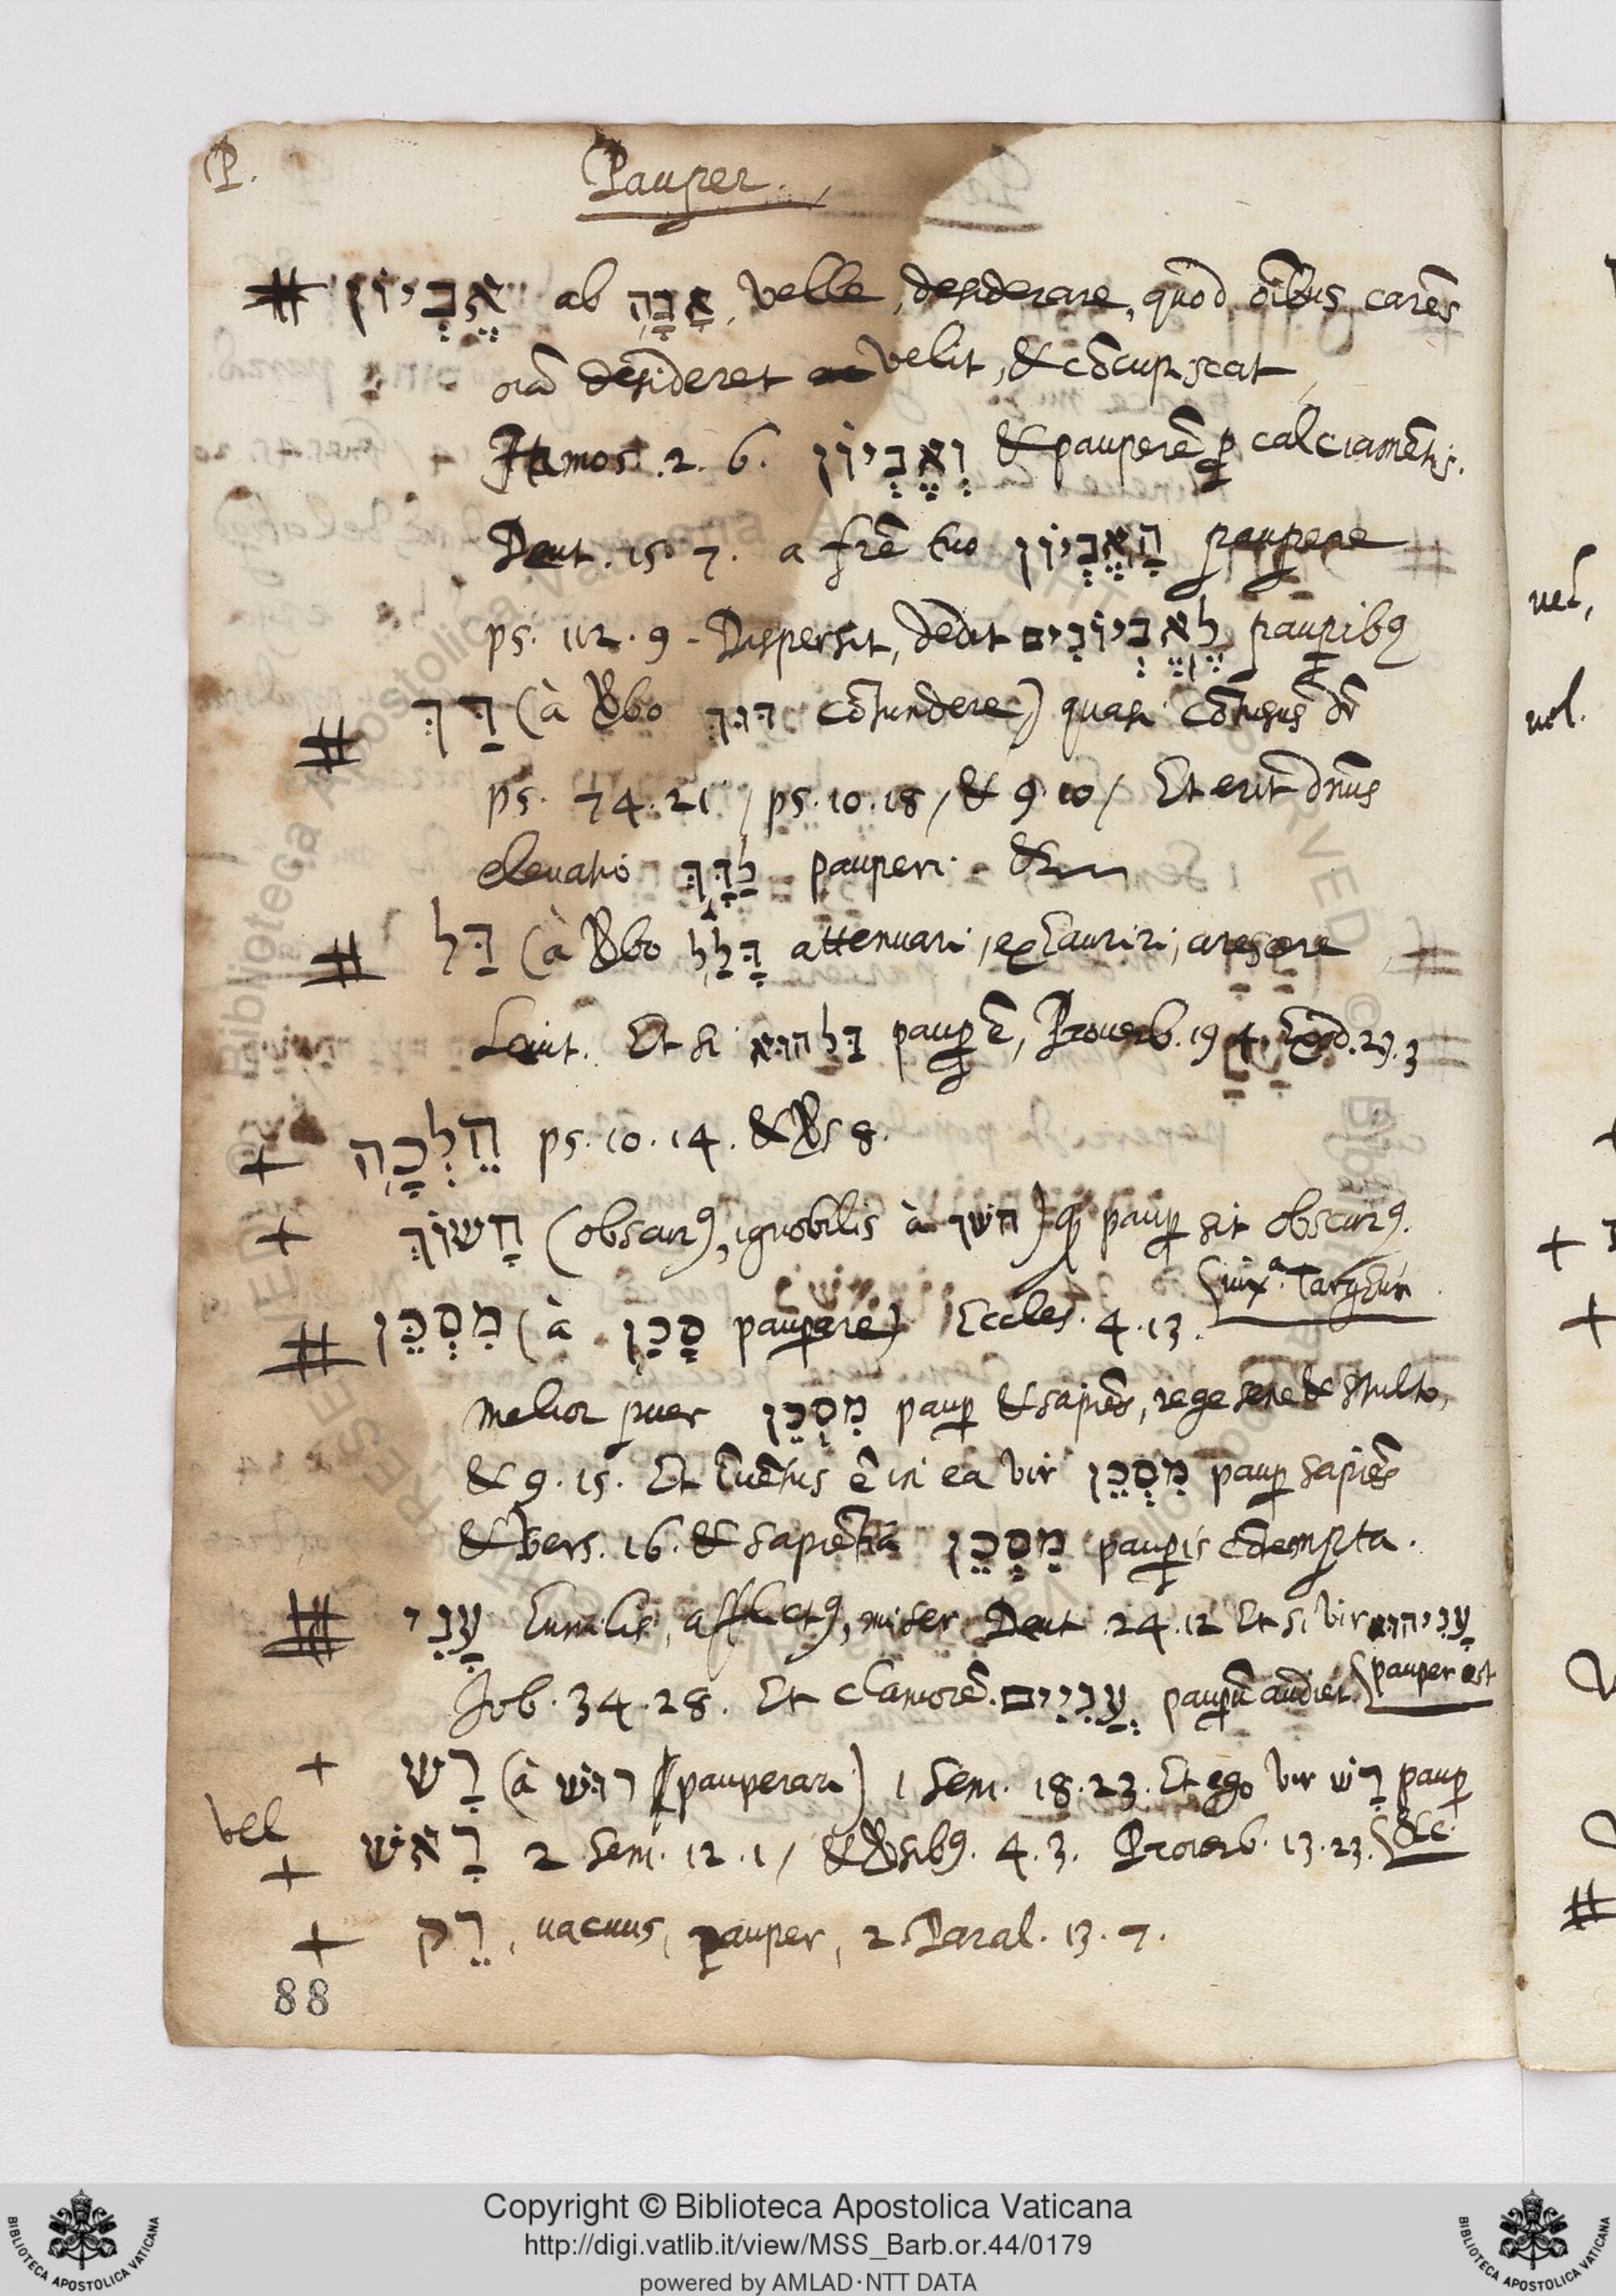 P.
Pauper.
# אֶבְיוֹן ab אָבָה, velle, desiderare, quod oĩbus carẽs
oĩa desideret velit, & cõcupiscat
Amos. 2. 6. וְאֶבְיוֹן & pauperẽ ꝓ calciamẽtis.
Deut. 15. 7. a frẽ tuo הָאֶבְיוֹן paupere
ps. 112. 9 - Dispersit, dedit לָאֶבְיוֹנִים pauꝑibꝰ
# דַּךְ (à Vbo דּוּךְ cõtundere) quasi cõtusus dr̃
ps. 74. 21 / ps. 10. 18, & 9 10 / Et erit dñus
elevatio לַדָּךְ pauperi. &
# דַּל (à Vbo דָּלַל attenuari, exhauriri, arescere
Levit. Et si דַּל הוּא pauꝑ ẽ, Proverb. 19 4. Exod. 23. 3
+ הֶלְכָה ps. 10. 14. & Vs 8.
+ חָשׁוֹךְ (obscurꝰ, ignobilis à חשׁך) qꝫ pauꝑ sit obscurꝰ.
iuxᵃ. Targhũ
# מִסְכֵּן (à סָכַן pauperare) Eccles. 4. 13.
melior puer מִסְכֵּן pauꝑ & sapiẽs, rege sene & stulto,
& 9. 15. Et Ĩuẽtus ẽ in ea vir מִסְכֵּן pauꝑ sapiẽs
& Vers. 16. & sapiẽtia מִסְכֵּן pauꝑis cõtempta.
# עָנִי humilis, afflictꝰ, miser Deut. 24. 12 Et si vir עָנִי הוּא
pauper est
Job. 34. 28. Et clamorẽ עֲנִיִּים pauꝑũ audiet
+ רָשׁ (à רוּשׁ pauperari) 1 Sem. 18. 23. Et ego vir רָשׁ pauꝑ
&c.
vel
+ רָאשׁ 2 Sem. 12. 1 / & Vsibꝰ. 4. 3. Proverb. 13. 23.
+ רֵק, vacuus, pauper, 2. Paral. 13. 7.
88
vel,
vel.
Copyright © Biblioteca Apostolica Vaticana
http://digi.vatlib.it/view/MSS_Barb.or.44/0179
powered by AMLAD·NTT DATA
BIBLIOTECA APOSTOLICA VATICANA
BIBLIOTECA APOSTOLICA VATICANA